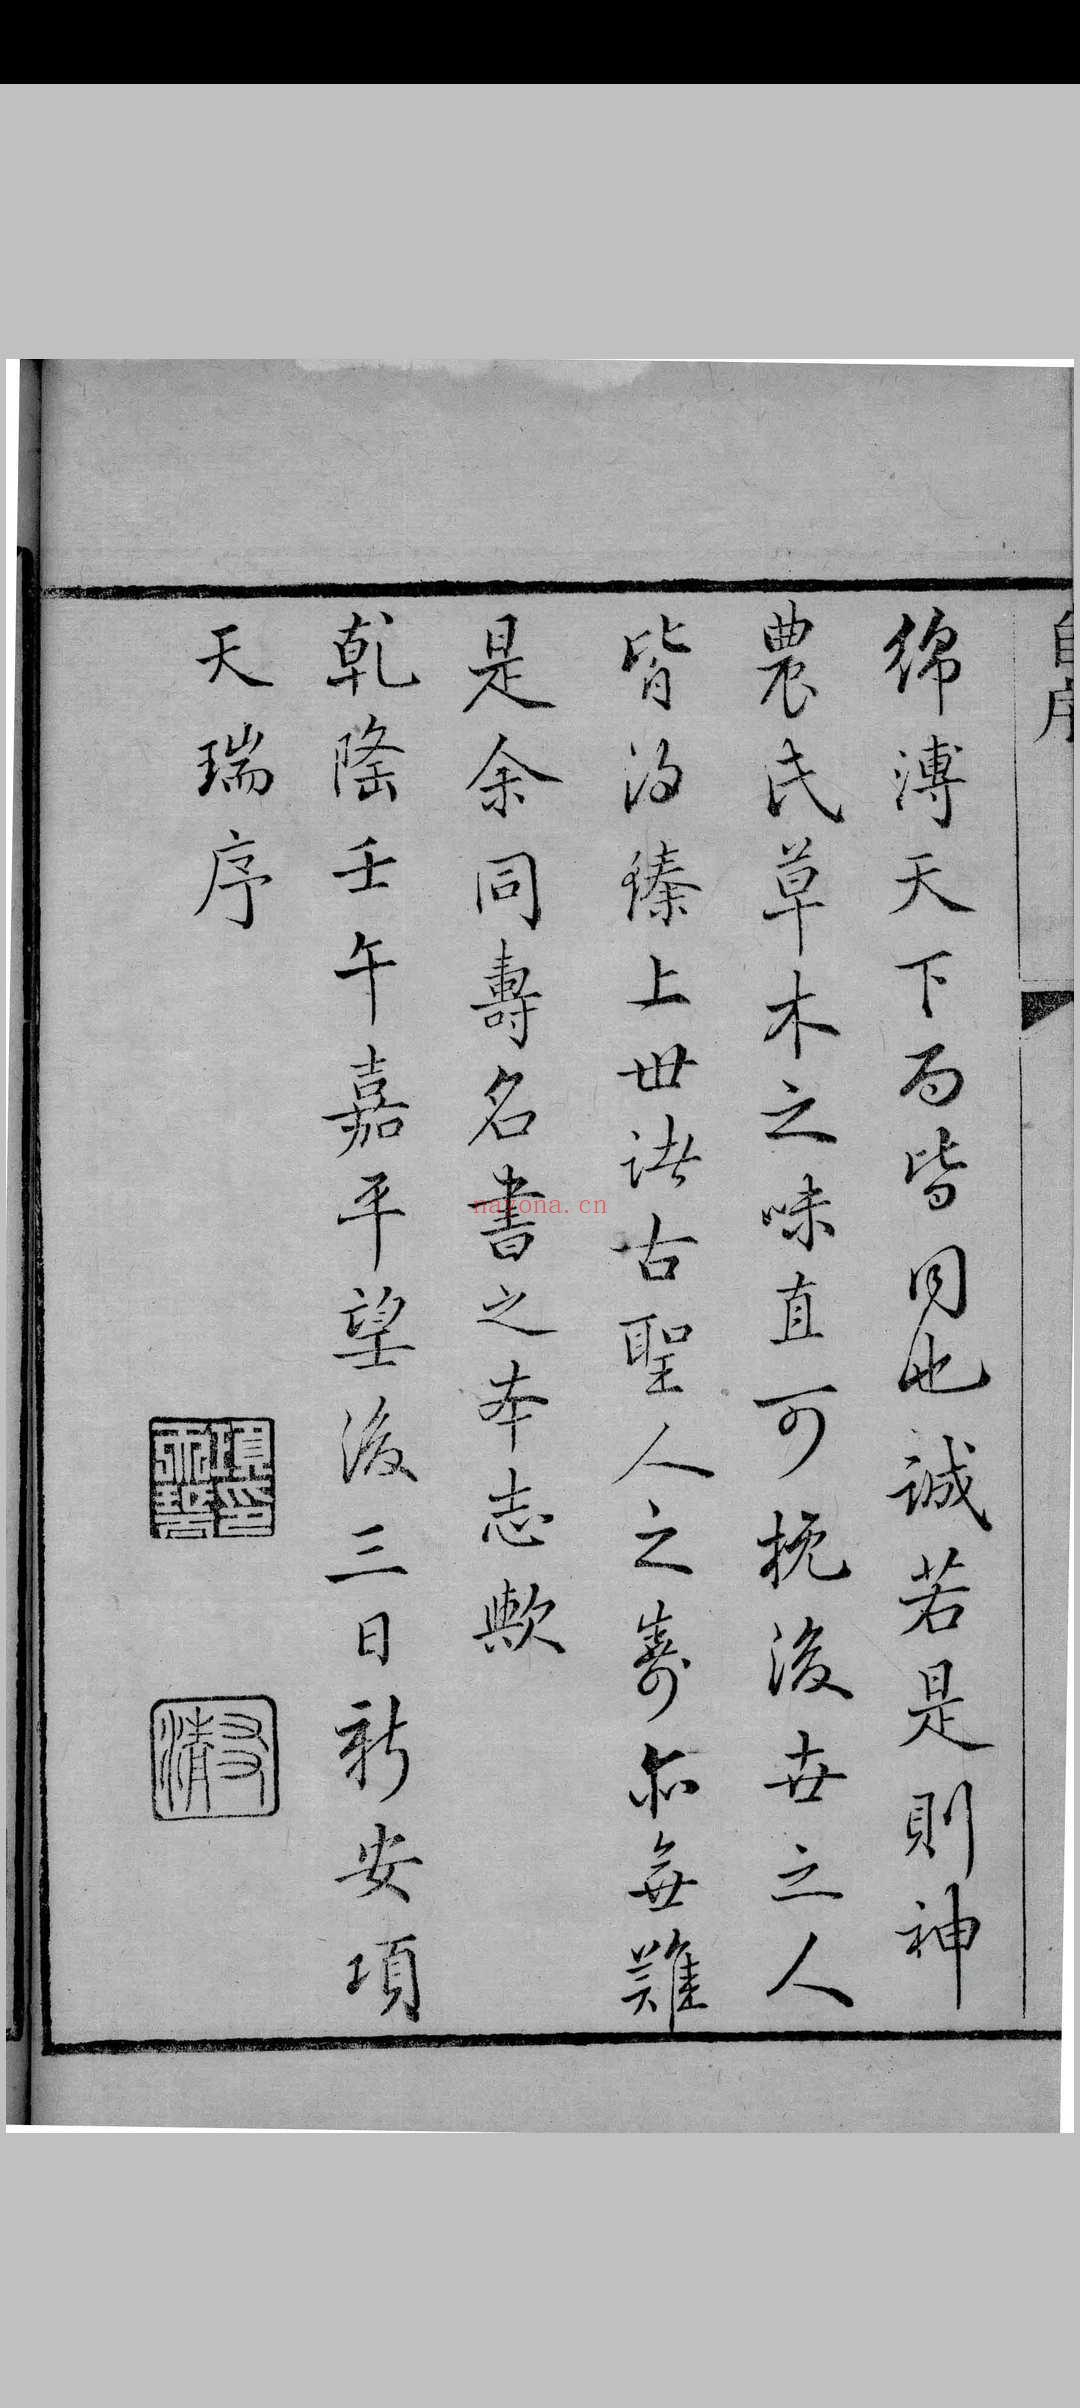 自序
綿溥天下而皆同也誠若是則神
農氏草木之味直可撫後世之人
皆得臻上世諸古聖人之壽亦無難
是余同壽名書之本志歟
乾隆壬午嘉平望後三日新安項
天瑞序
項印天瑞
友清
nayona.cn